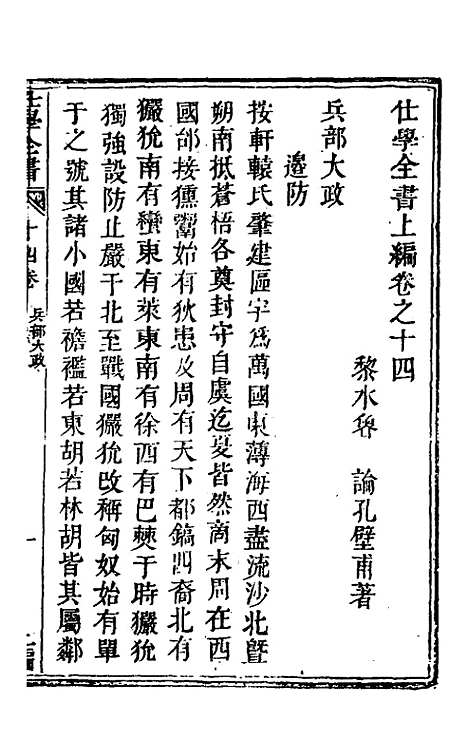 仕學全書上編卷之十四
黎水魯論孔壁甫著
兵部大政
邊防
按軒轅氏肇建區宇為萬國東薄海西盡流沙北曁
朔南抵蒼梧各奠封守自虞迄夏皆然商末周在西
國邰接獯鬻始有狄患及周有天下都鎬四裔北有
玁狁南有蠻東有萊東南有徐西有巴僰于時玁狁
獨強設防止嚴于北至戰國玁狁攺稱匈奴始有單
于之號其諸小國若襜襤若東胡若林胡皆其屬鄰
仕學全書
十四卷
兵部大政
一
上編